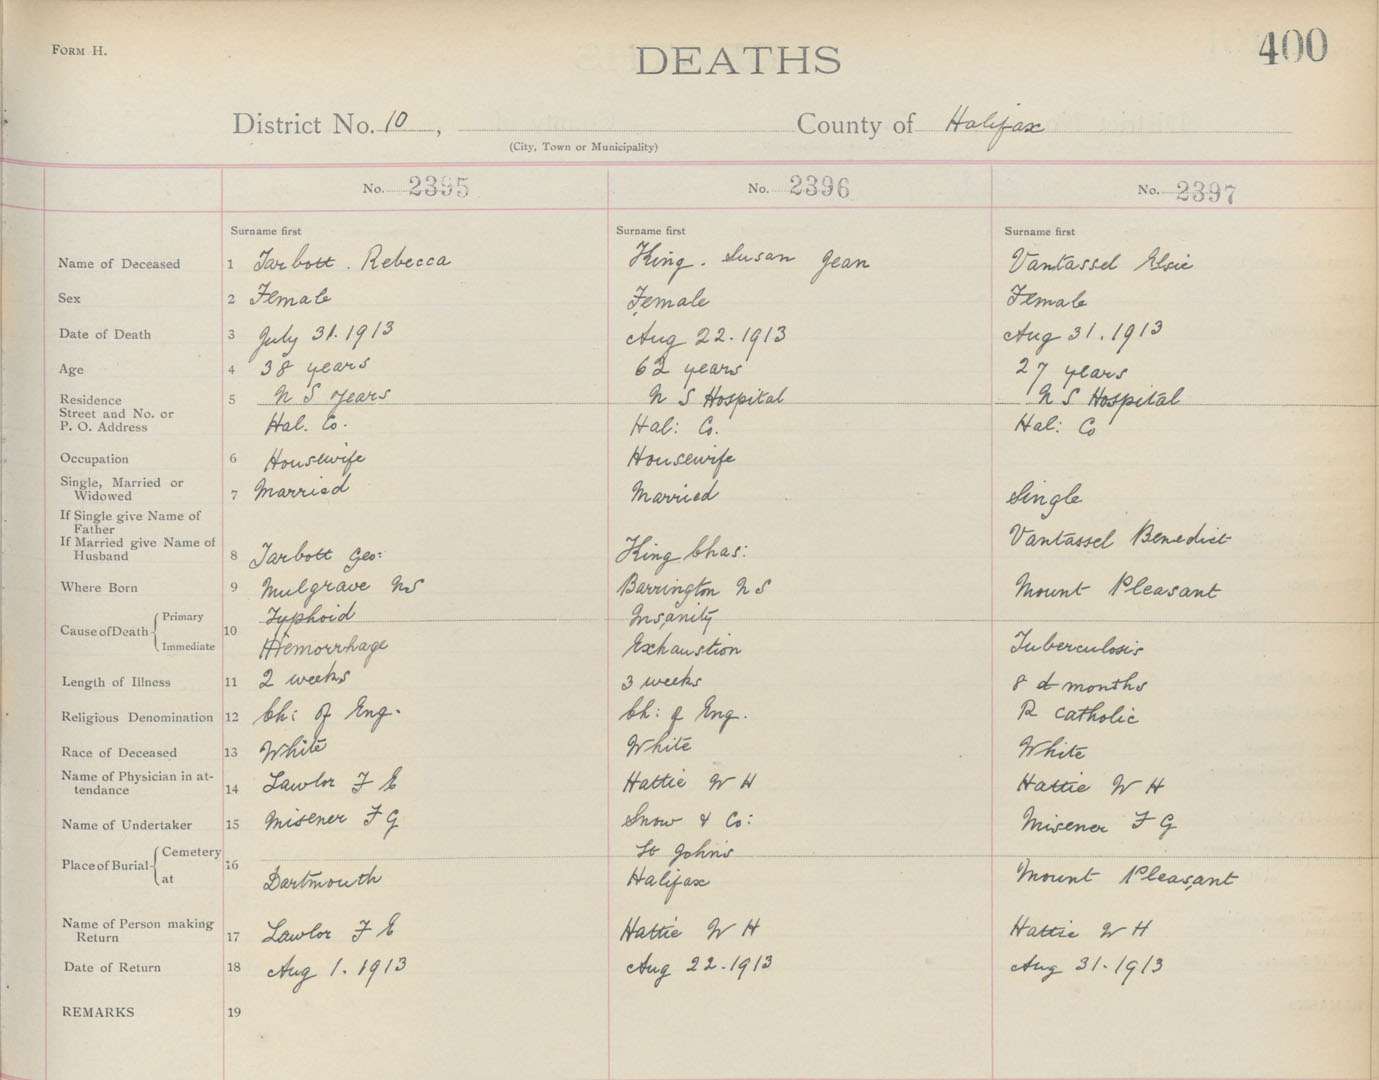 FORM H.
DEATHS
400
District No. 10, County of Halifax
(City, Town or Municipality)
No. 2395 No. 2396 No. 2397
Surname first Surname first Surname first
Name of Deceased 1 Tarbott. Rebecca King. Susan Jean Vantassel Elsie
Sex 2 Female Female Female
Date of Death 3 July 31. 1913 Aug 22. 1913 Aug 31. 1913
Age 4 38 years 62 years 27 years
Residence 5 N S years N S Hospital N S Hospital
Street and No. or
P. O. Address Hal. Co. Hal: Co. Hal: Co
Occupation 6 Housewife Housewife
Single, Married or
Widowed 7 Married Married Single
If Single give Name of
Father Vantassel Benedict
If Married give Name of
Husband 8 Tarbott Geo: King Chas:
Where Born 9 Mulgrave NS Barrington N S Mount Pleasant
Cause of Death Primary 10 Typhoid Insanity
Immediate Hemorrhage Exhaustion Tuberculosis
Length of Illness 11 2 weeks 3 weeks 8 months
Religious Denomination 12 Ch: of Eng. Ch: of Eng. R Catholic
Race of Deceased 13 White White White
Name of Physician in at-
tendance 14 Lawlor F E Hattie W H Hattie W H
Name of Undertaker 15 Misener F G Snow & Co: Misener F G
Place of Burial Cemetery 16 St Johns
at Dartmouth Halifax Mount Pleasant
Name of Person making
Return 17 Lawlor F E Hattie W H Hattie W H
Date of Return 18 Aug 1. 1913 Aug 22. 1913 Aug 31. 1913
REMARKS 19